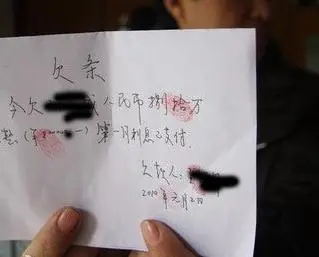 欠条
今欠 人民币捌拾万
整( 一)第一月利息已支付
欠款人:
2010年元月2日